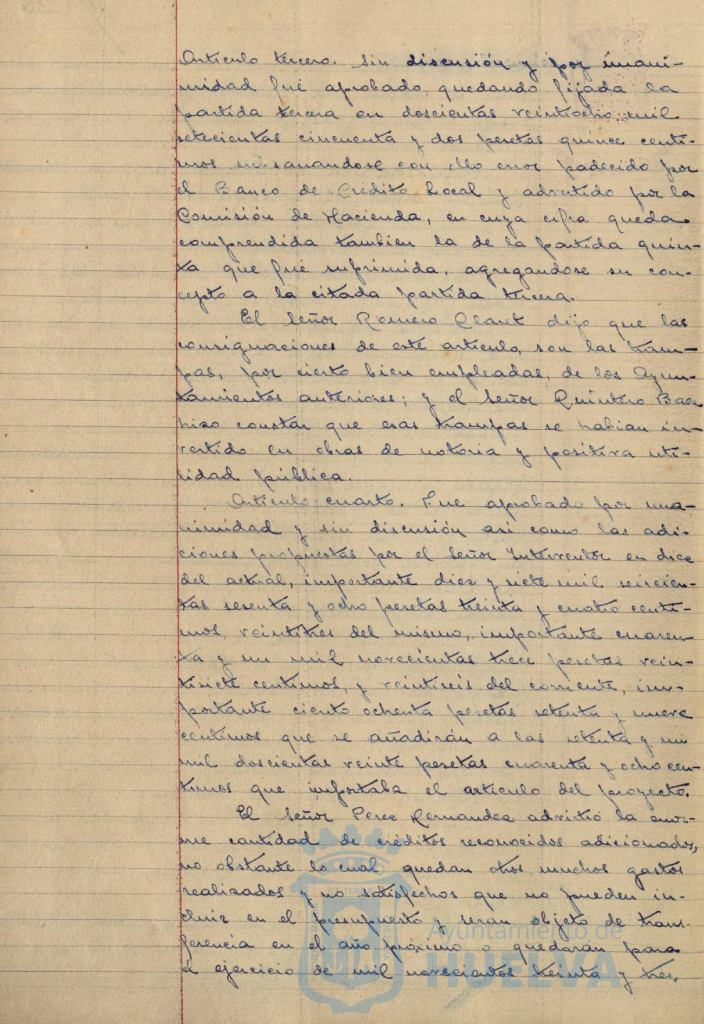 Artículo tercero. Sin discusión y por unani-
midad fué aprobado, quedando fijada la
partida tercera en doscientas veintiocho mil
setecientas cincuenta y dos pesetas quince centi-
mos subsanandose con ello error padecido por
el Banco de Crédito Local y advertido por la
Comisión de Hacienda, en cuya cifra queda
comprendida tambien la de la partida quin-
ta que fué suprimida, agregandose su con-
cepto a la citada partida tercera.
El Señor Romero Claret dijo que las
consignaciones de este artículo, son las tram-
pas, por cierto bien empleadas, de los Ayun-
tamientos anteriores; y el Señor Quintero Baez
hizo constar que esas trampas se habian in-
vertido en obras de notoria y positiva uti-
lidad pública.
Artículo cuarto. Fue aprobado por una-
nimidad y sin discusión asi como las adi-
ciones propuestas por el Señor Interventor en doce
del actual, importante diez y siete mil seiscien-
tas sesenta y ocho pesetas treinta y cuatro centi-
mos, veintitres del mismo, importante cuaren-
ta y un mil novecientas trece pesetas vein-
tisiete centimos, y veintiseis del corriente, im-
portante ciento ochenta pesetas setenta y nueve
centimos que se añadirán a las setenta y un
mil doscientas veinte pesetas cuarenta y ocho cen-
timos que importaba el articulo del proyecto.
El Señor Perez Hernandez advirtió la enor-
me cantidad de créditos reconocidos adicionados,
no obstante lo cual quedan otros muchos gastos
realizados y no satisfechos que no pueden in-
cluir en el presupuesto y seran objeto de trans-
ferencia en el año próximo o quedarán para
el ejercicio de mil novecientos treinta y tres.
Ayuntamiento de
HUELVA